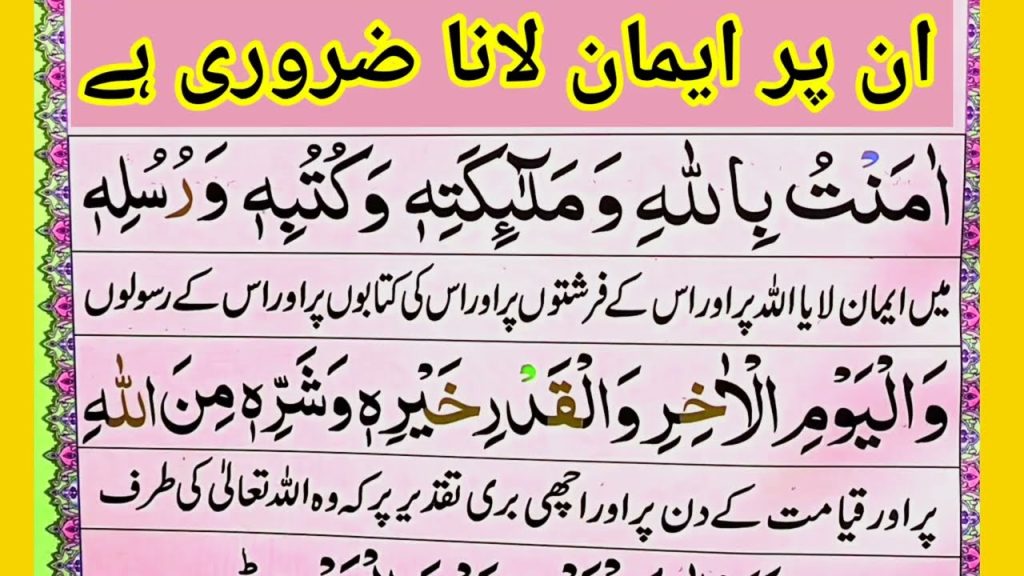 ان پر ایمان لانا ضروری ہے
اٰمَنْتُ بِاللّٰهِ وَمَلٰٓئِكَتِهٖ وَكُتُبِهٖ وَرُسُلِهٖ
میں ایمان لایا اللہ پر اور اس کے فرشتوں پر اور اس کی کتابوں پر اور اس کے رسولوں
وَالْيَوْمِ الْاٰخِرِ وَالْقَدْرِ خَيْرِهٖ وَشَرِّهٖ مِنَ اللّٰهِ
پر اور قیامت کے دن پر اور اچھی بری تقدیر پر کہ وہ اللہ تعالیٰ کی طرف